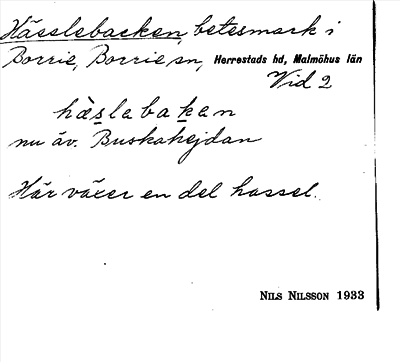 Hässlebacken, betesmark i
Borrie, Borrie sn, Herrestads hd, Malmöhus län
Vid 2
hàslebaken
nu äv. Buskahejdan
Här växer en del hassel.
NILS NILSSON 1933